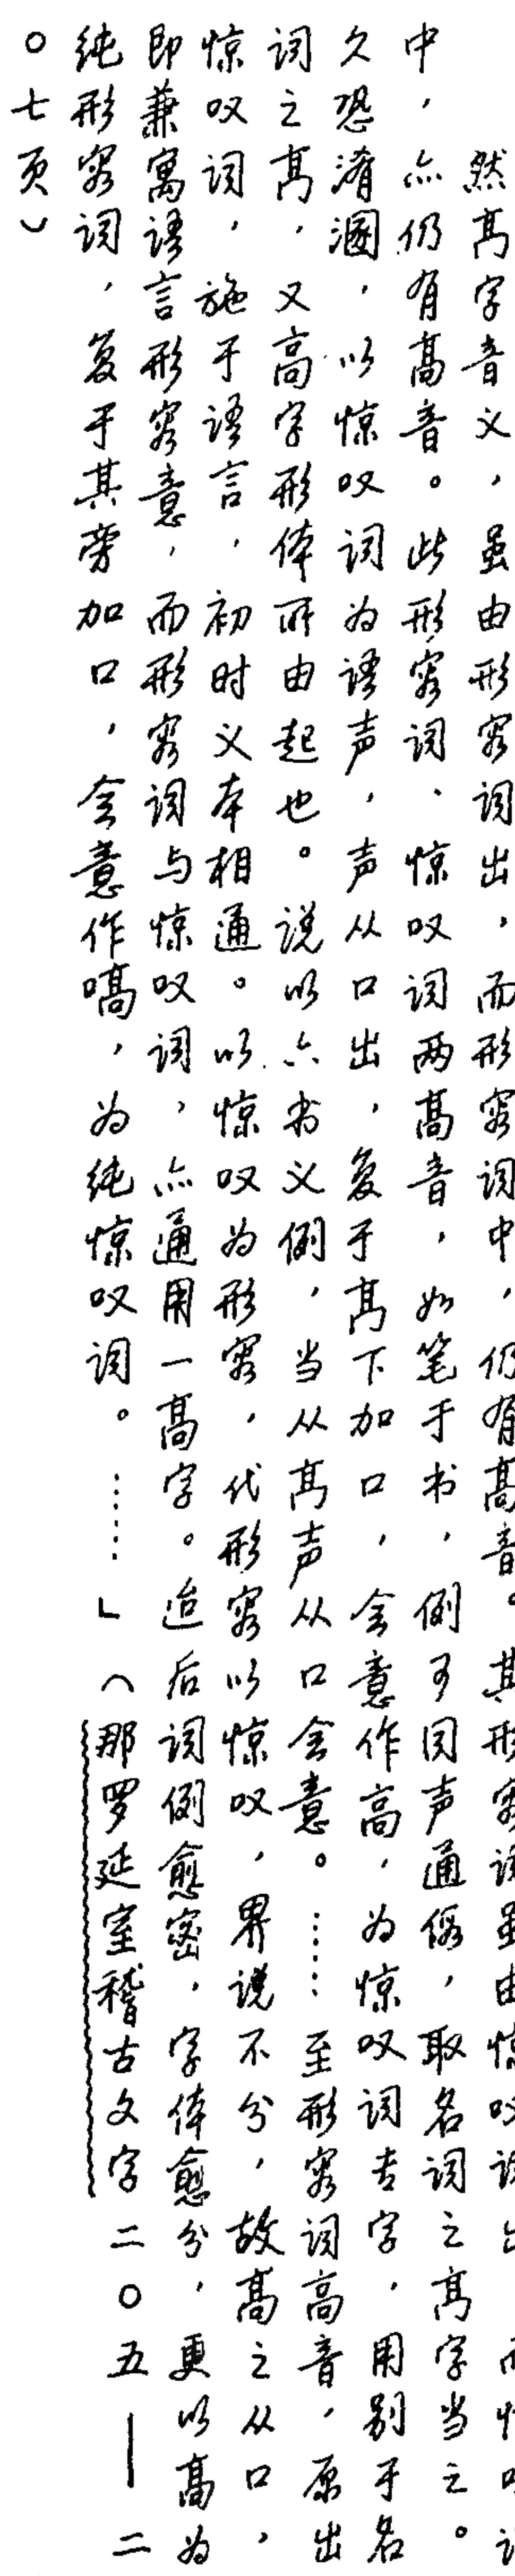 然高字音义，虽由形容词出，而形容词中，仍有高音。其形容词虽由惊叹词出
中，亦仍有高音。此形容词、惊叹词两高音，如笔于书，例可同声通假，取名词之髙字当之。
久恐淆溷，以惊叹词为语声，声从口出，复于髙下加口，会意作高，为惊叹词专字，用别于名
词之髙，又高字形体所由起也。说以六书义例，当从髙声从口会意。……至形容词高音，原出
惊叹词，施于语言，初时义本相通。以惊叹为形容，代形容以惊叹，界说不分，故高之从口，
即兼寓语言形容意，而形容词与惊叹词，亦通用一高字。迨后词例愈密，字体愈分，更以高为
纯形容词，复于其旁加口，会意作嗃，为纯惊叹词。……」（那罗延室稽古文字二〇五——二
〇七页）